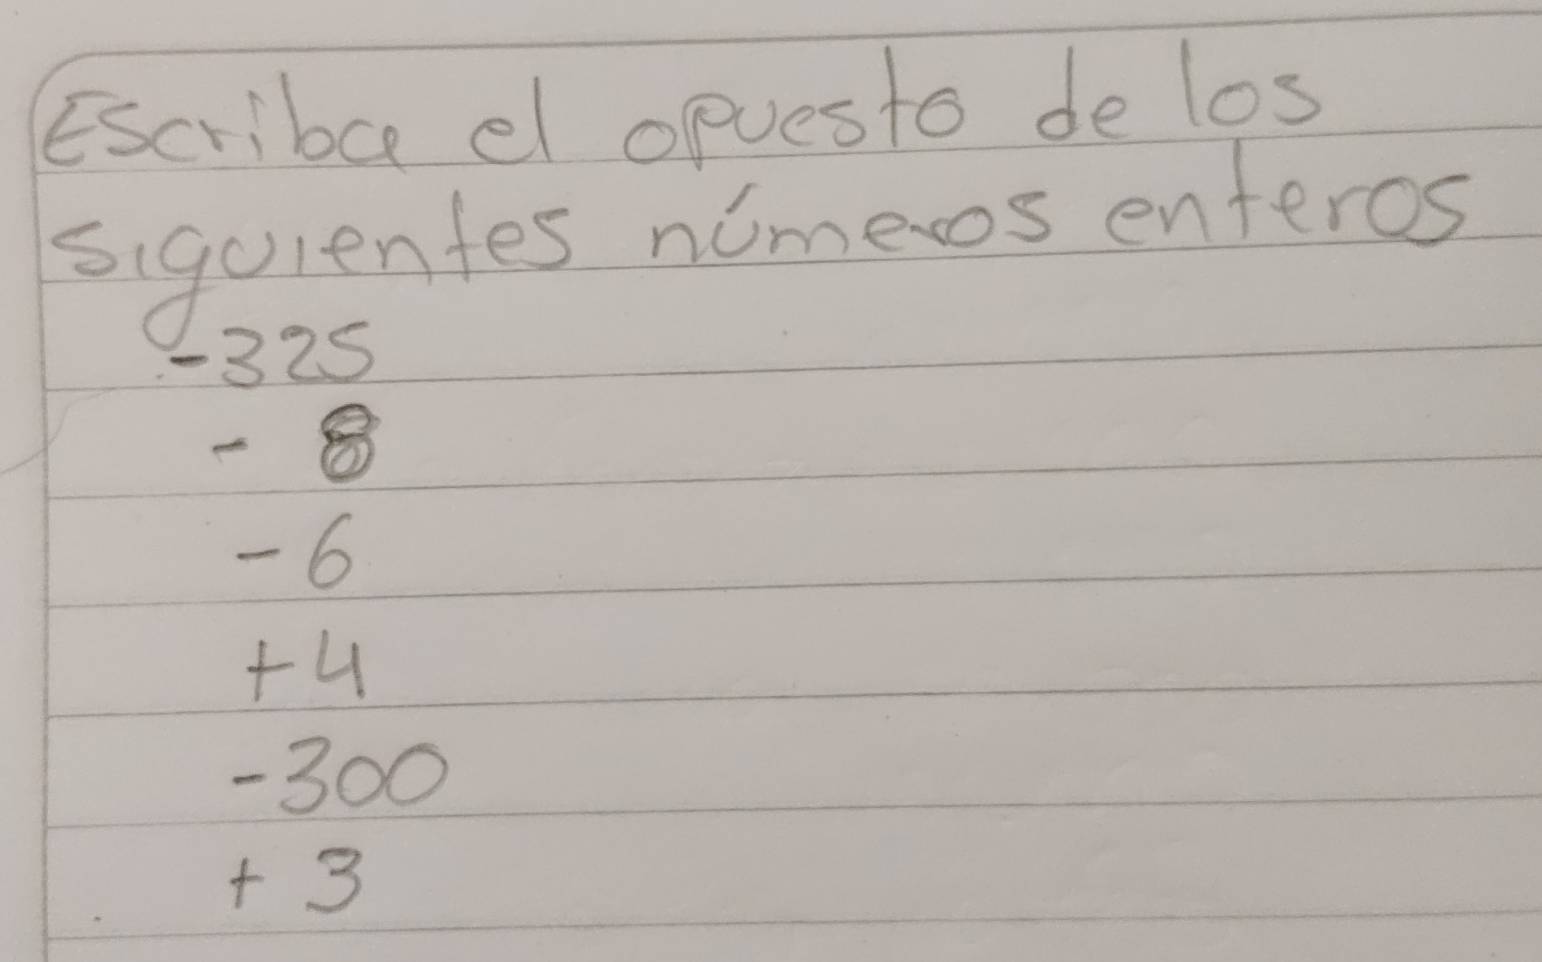 Escriba el opuesto de los
siguientes números enteros
-325
- 8
-6
+4
-300
+ 3